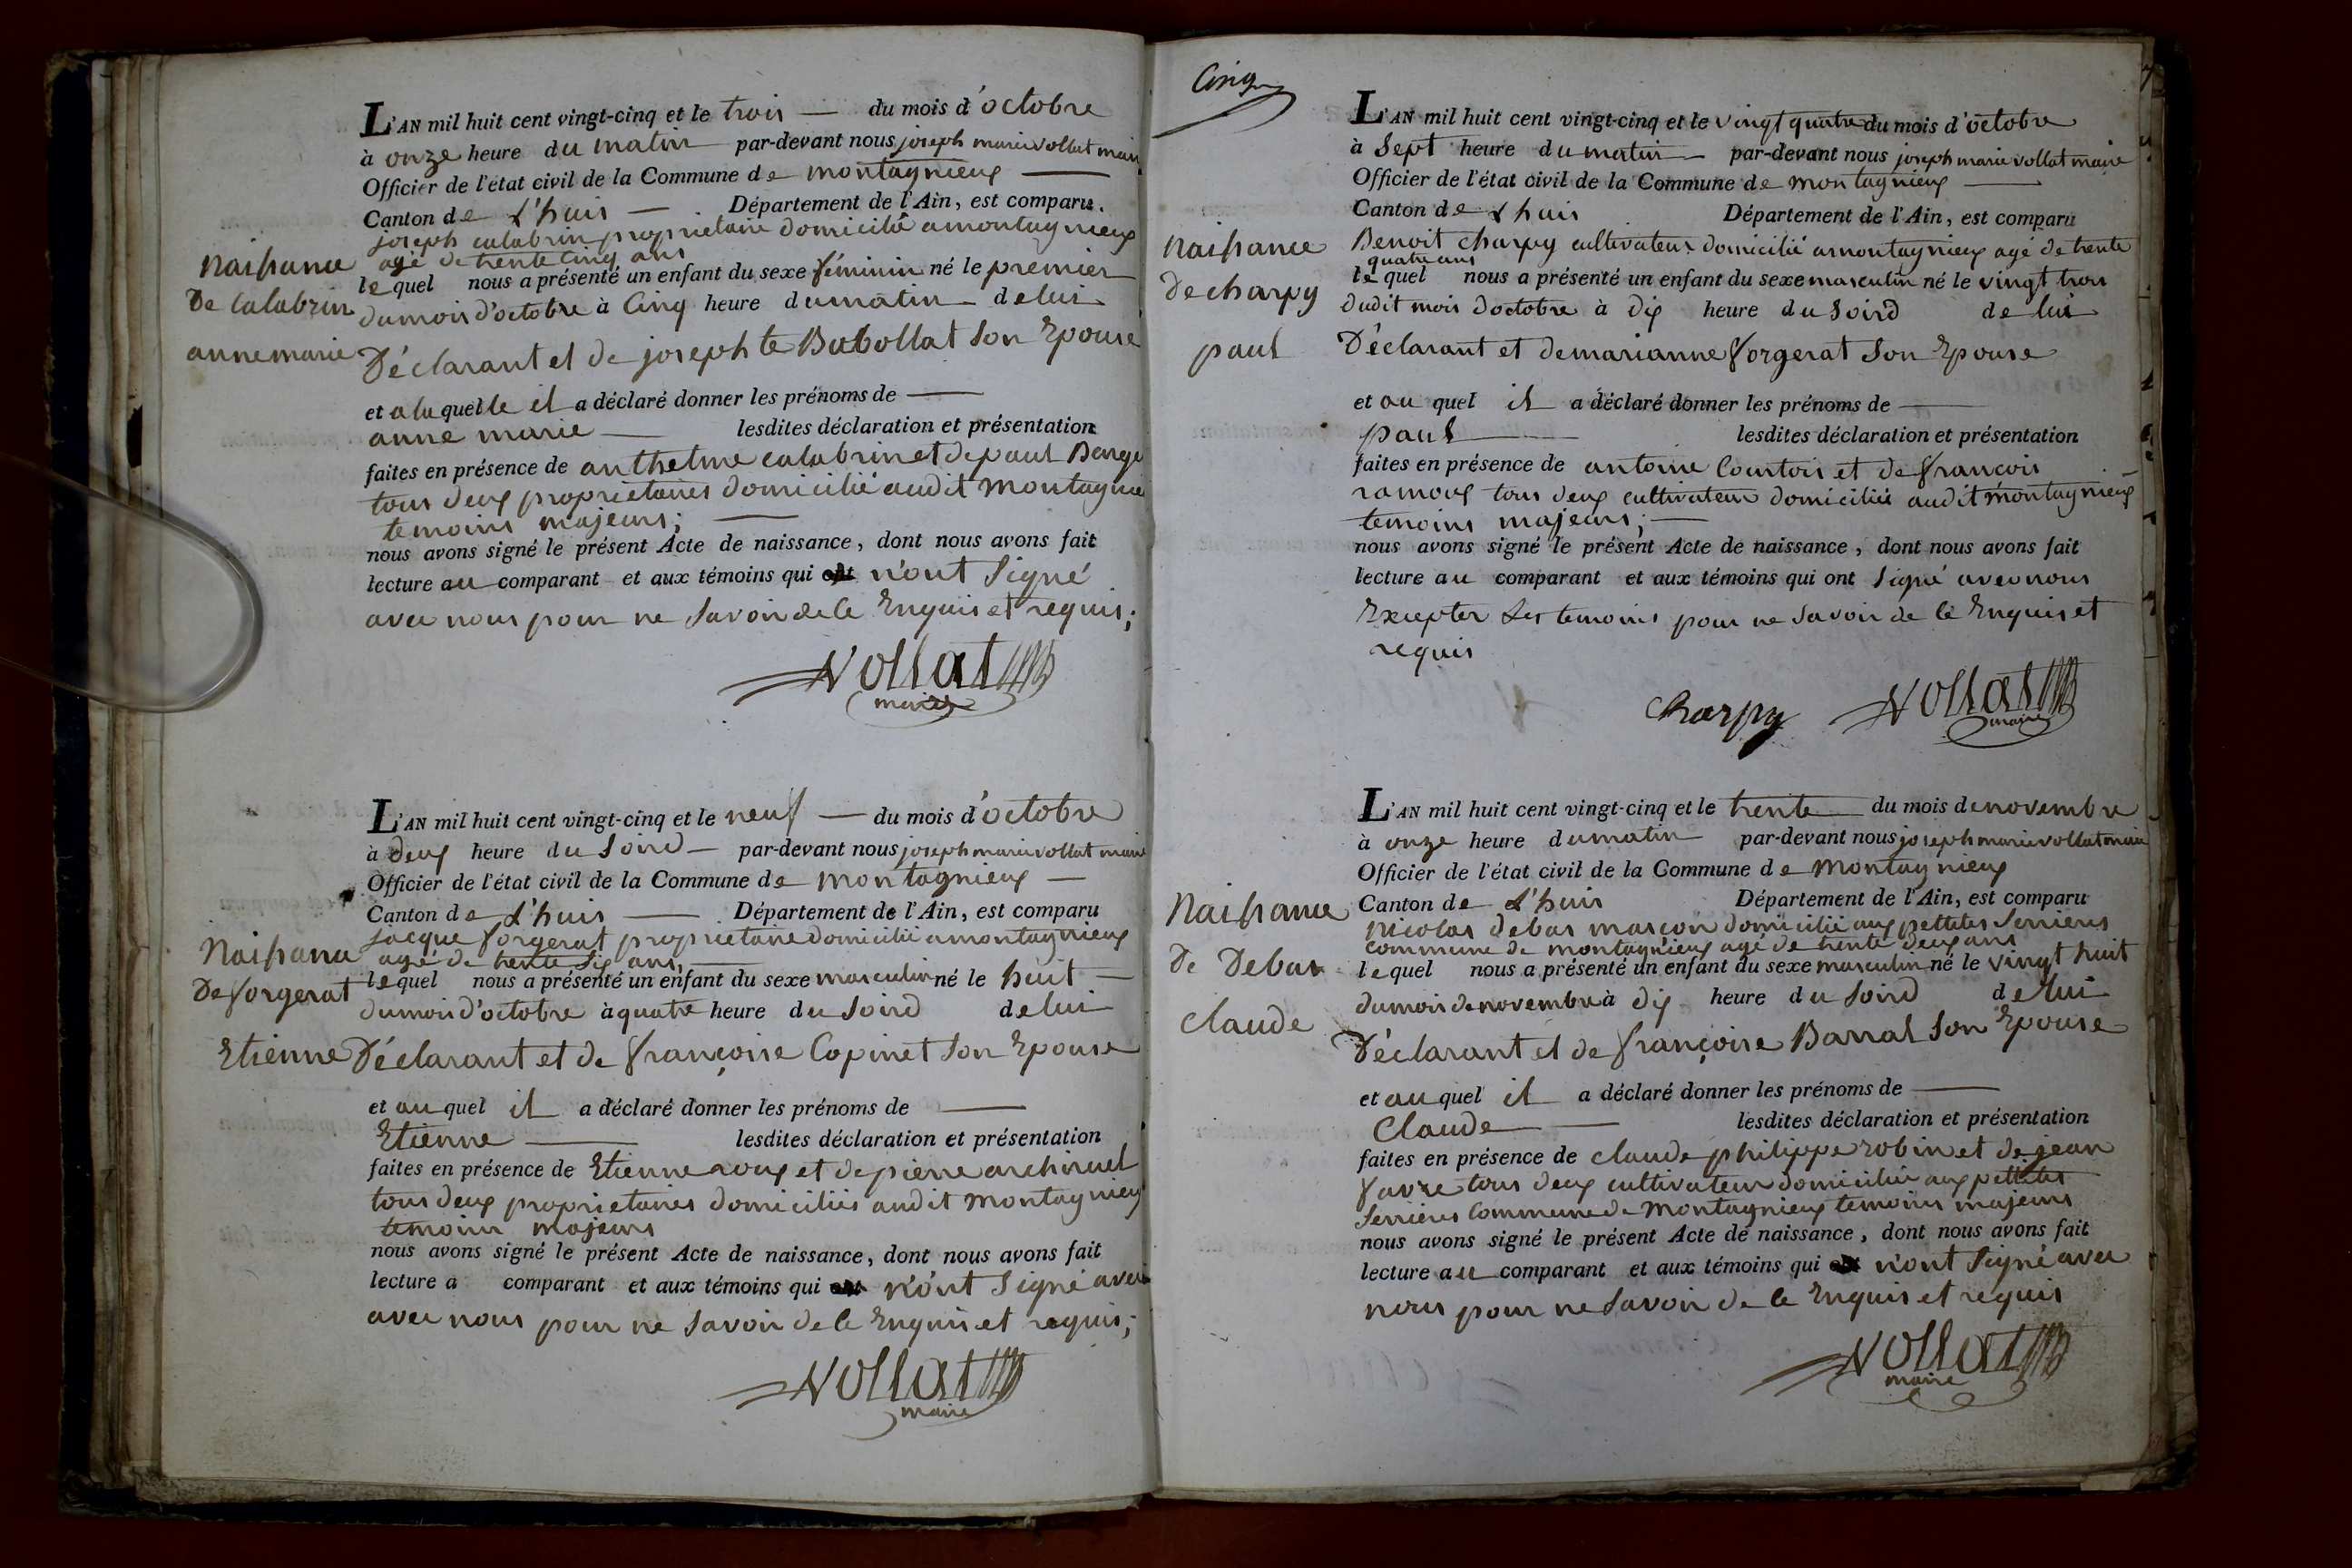 L'AN mil huit cent vingt-cinq et le trois — du mois d'octobre
à onze heure du matin par-devant nous joseph marie vollat maire
Officier de l'état civil de la Commune de montagnieux —
Canton de L'huis — Département de l'Ain, est comparu.
joseph calabrin proprietaire domicilié a montagnieux
agé de trente cinq ans
Naissance
De Calabrin
anne marie
lequel nous a présenté un enfant du sexe féminin né le premier
du mois d'octobre à Cinq heure du matin de lui
Déclarant et de josephte Bubollat son Epouse
et a laquelle il a déclaré donner les prénoms de —
anne marie — lesdites déclaration et présentation
faites en présence de anthelme calabrin et de paul
tous deux proprietaires domicilié audit montagnieux
temoins majeurs; —
nous avons signé le présent Acte de naissance, dont nous avons fait
lecture au comparant et aux témoins qui n'ont signé
avec nous pour ne savoir de ce Enquis et requis;
Vollat
maire
L'AN mil huit cent vingt-cinq et le neuf — du mois d'octobre
à deux heure du soird — par-devant nous joseph marie vollat maire
Officier de l'état civil de la Commune de montagnieux —
Canton de L'huis — Département de l'Ain, est comparu
jacque forgerat proprietaire domicilié a montagnieux
agé de trente six ans, —
Naissance
De forgerat
Etienne
lequel nous a présenté un enfant du sexe masculin né le huit —
du mois d'octobre à quatre heure du soird de lui
Déclarant et de françoise Copinet son Epouse
et au quel il a déclaré donner les prénoms de —
Etienne — lesdites déclaration et présentation
faites en présence de Etienne roux et de pierre
tous deux proprietaires domiciliés audit montagnieux
temoins majeurs
nous avons signé le présent Acte de naissance, dont nous avons fait
lecture a comparant et aux témoins qui n'ont signé avec
avec nous pour ne savoir de ce Enquis et requis;
Vollat
maire
Cinq
L'AN mil huit cent vingt-cinq et le vingt quatre du mois d'octobre
à Sept heure du matin — par-devant nous joseph marie vollat maire
Officier de l'état civil de la Commune de montagnieux —
Canton de Lhuis Département de l'Ain, est comparu
Benoit charpy cultivateur domicilié a montagnieux agé de trente
quatre ans
Naissance
De charpy
paul
lequel nous a présenté un enfant du sexe masculin né le vingt trois
dudit mois doctobre à dix heure du soird de lui
Déclarant et de marianne forgerat son Epouse
et au quel il a déclaré donner les prénoms de —
paul — lesdites déclaration et présentation
faites en présence de antoine Courtois et de françois
ramoux tous deux cultivateur domiciliés audit montagnieux
temoins majeurs; —
nous avons signé le présent Acte de naissance, dont nous avons fait
lecture au comparant et aux témoins qui ont signé avec nous
Excepter Les temoins pour ne savoir de ce Enquis et
requis
Charpy Vollat
maire
L'AN mil huit cent vingt-cinq et le trente — du mois de novembre
à onze heure du matin par-devant nous joseph marie vollat maire
Officier de l'état civil de la Commune de montagnieux
Canton de L'huis Département de l'Ain, est comparu
nicolas debas masçon domicilié aux pettites serrieres
commune de montagnieux agé de trente deux ans
Naissance
De Debas
claude
lequel nous a présenté un enfant du sexe masculin né le vingt huit
du mois de novembre à dix heure du soird de lui
Déclarant et de françoise Barral son Epouse
et au quel il a déclaré donner les prénoms de —
Claude — lesdites déclaration et présentation
faites en présence de claude philippe robin et de jean
favre tous deux cultivateur domicilié aux pettites
serrieres Commune de Montagnieux temoins majeurs
nous avons signé le présent Acte de naissance, dont nous avons fait
lecture au comparant et aux témoins qui n'ont signé avec
nous pour ne savoir de ce Enquis et requis
Vollat
maire